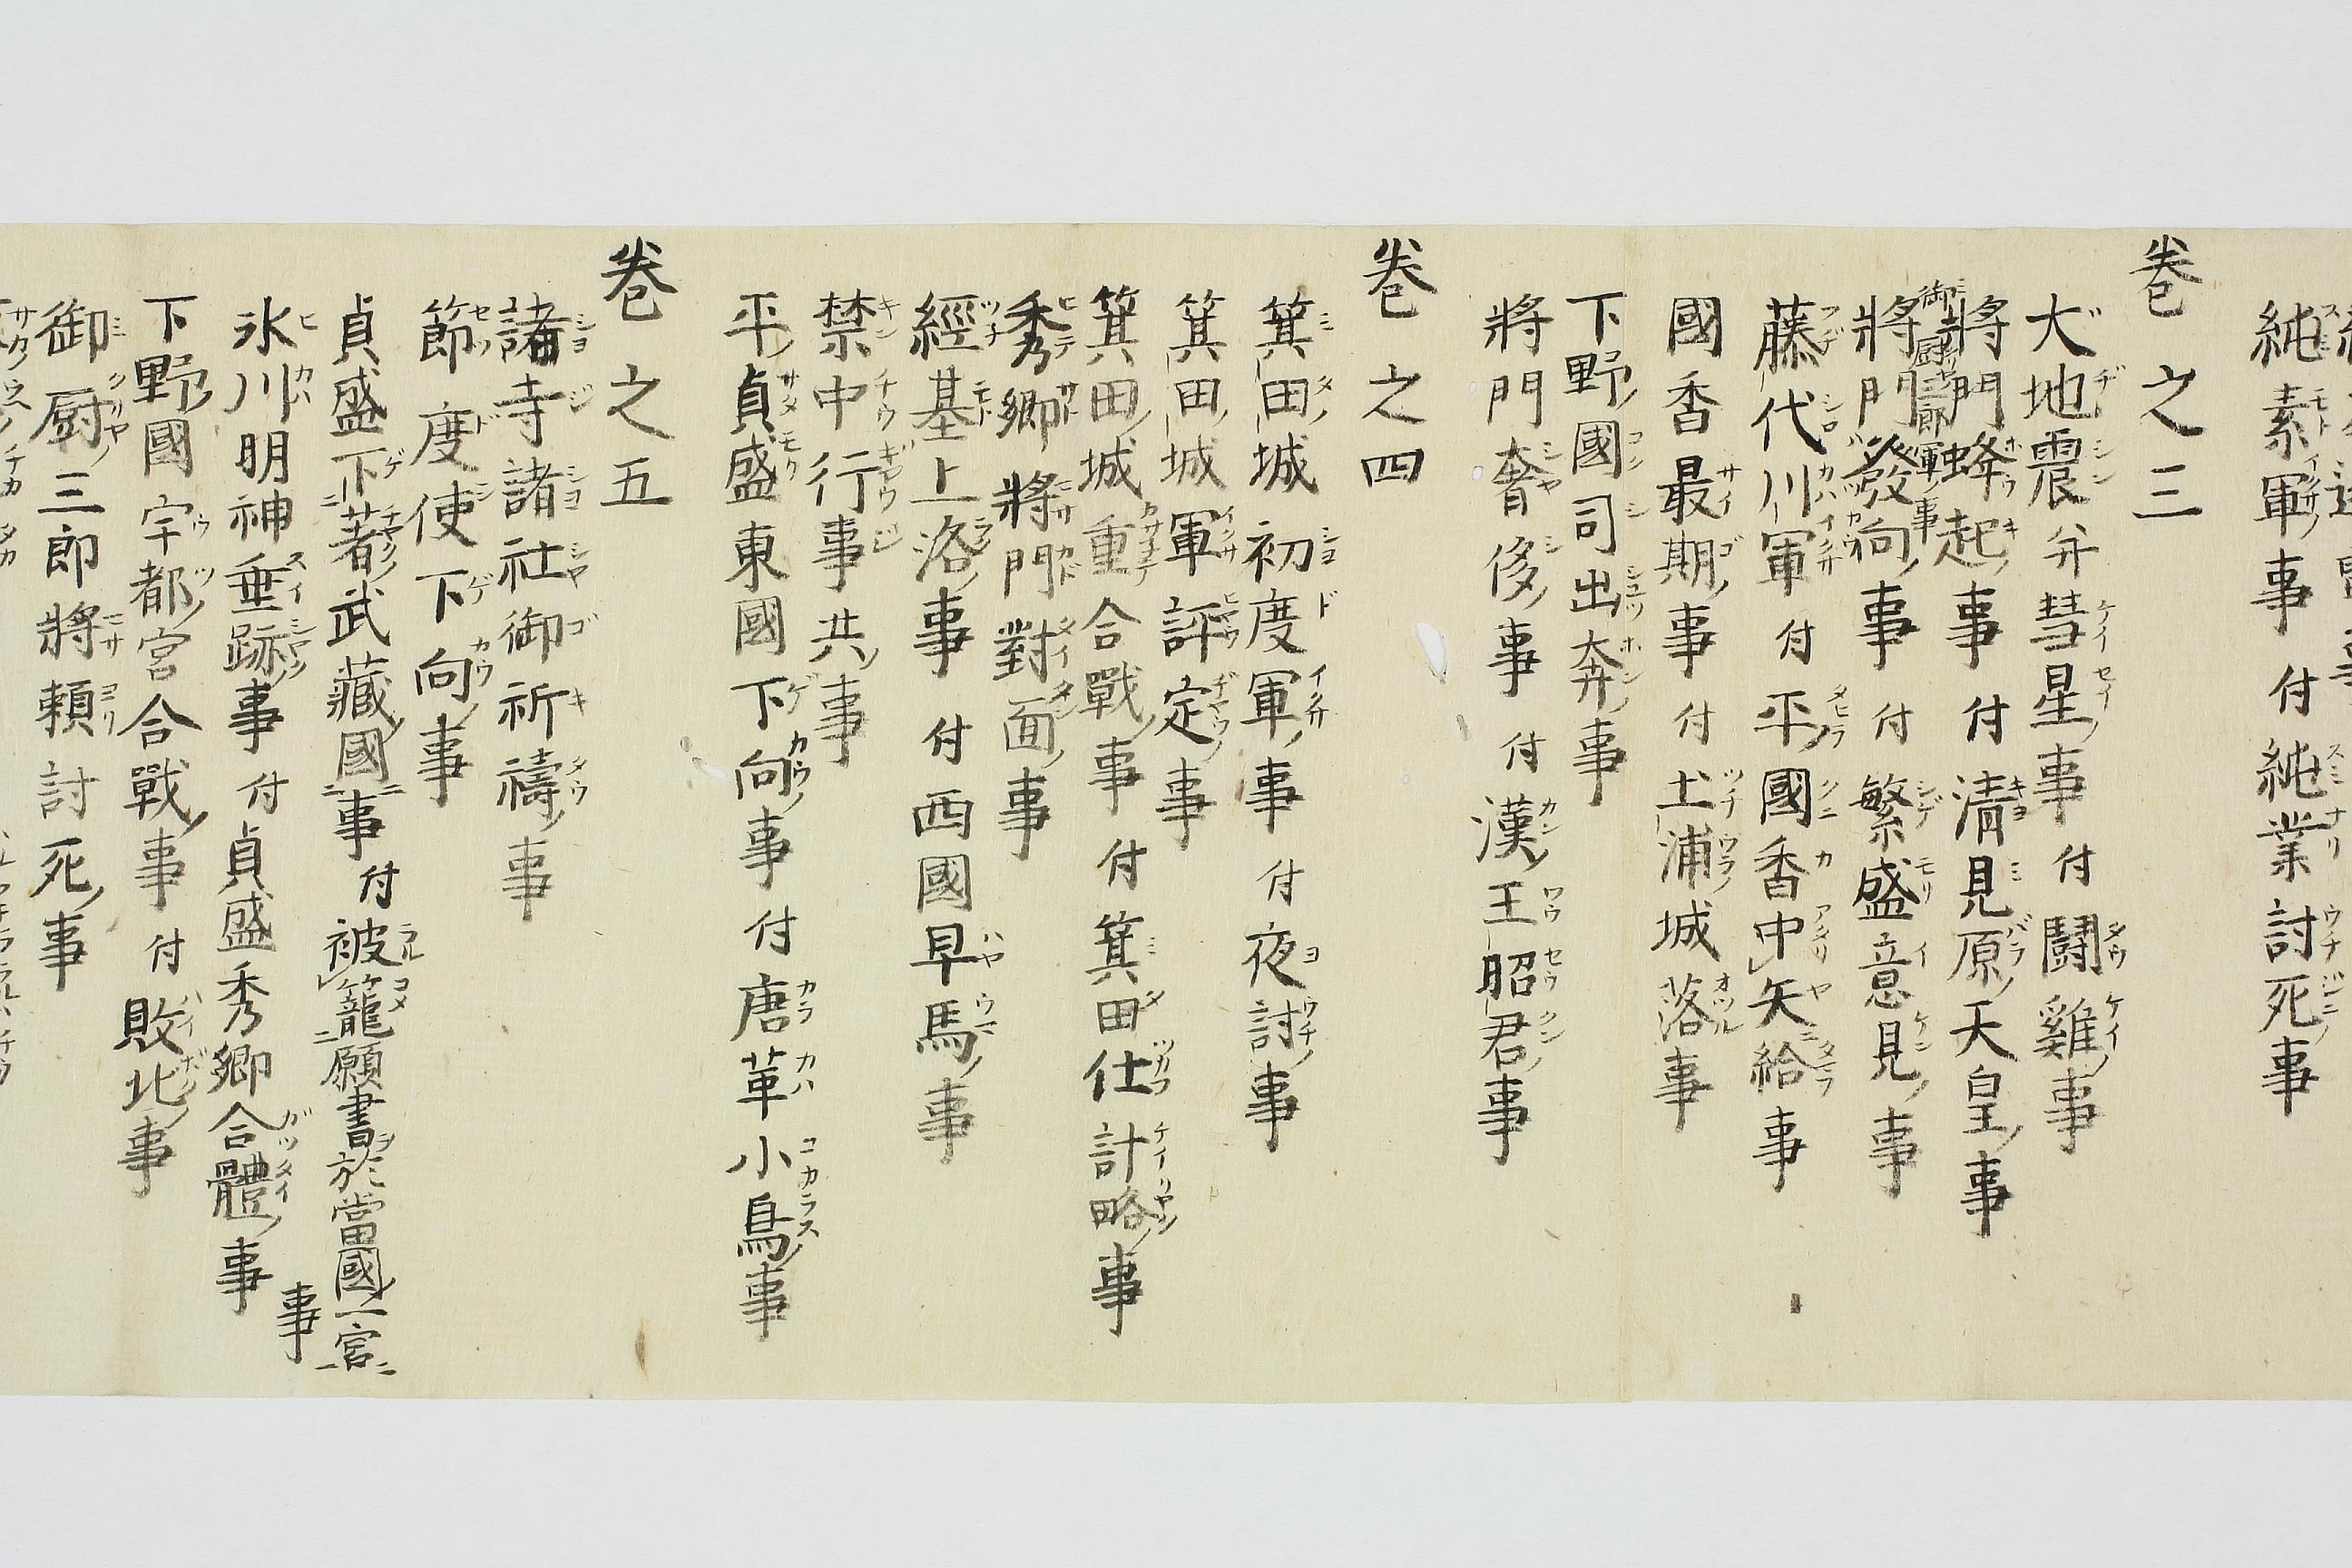 純素軍事付純業討死事
巻之三
大地震弁彗星事付闘雞事
將門蜂起事付清見原天皇事
御厨三郎軍事
將門發向事付繁盛意見事
藤代川軍付平國香中矢給事
國香最期事付土浦城落事
下野國司出奔事
將門奢侈事付漢王昭君事
巻之四
箕田城初度軍事付夜討事
箕田城軍評定事
箕田城重合戰事付箕田仕計略事
秀卿將門對面事
經基上洛事付西國早馬事
禁中行事共事
平貞盛東國下向事付唐革小烏事
巻之五
諸寺諸社御祈禱事
節度使下向事
貞盛下著武藏國事付被籠願書於當國一宮事
氷川明神垂跡事付貞盛秀卿合體事
下野國宇都宮合戰事付敗北事
御厨三郎將頼討死事